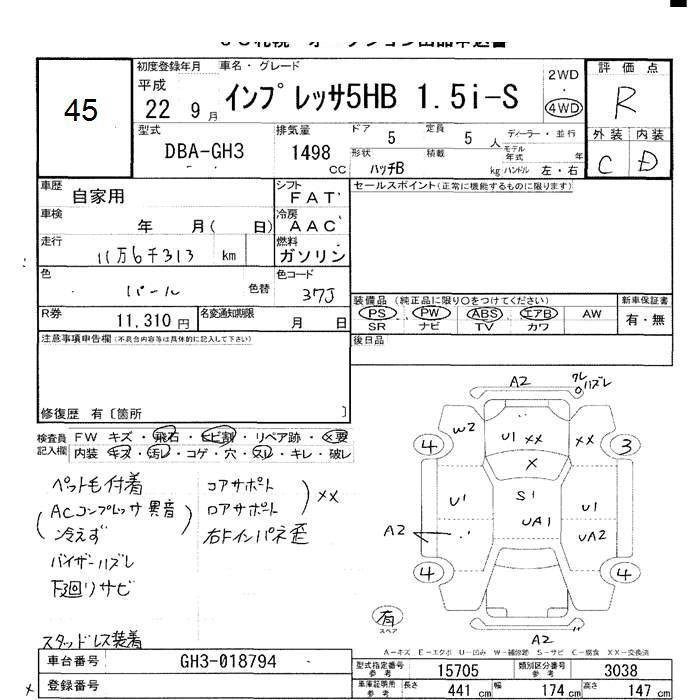 45
初度登録年月 車名・グレード
平成
22 9月 インプレッサ5HB 1.5i-S
2WD
4WD
評価点
R
外装 内装
C D
型式 排気量 ドア 定員 ディーラー・並行
DBA-GH3 1498 CC 5 5 人 モデル年式 年
形状 積載
ハッチB kg ハンドル 左・右
車歴 自家用 シフト FAT
セールスポイント(正常に機能するものに限ります)
車検 年 月( 日) 冷房 AAC
走行 11万6千313 km 燃料 ガソリン
色 パール 色替 色コード 37J
R券 11,310円 名変通知期限 月 日
装備品(純正品に限り○をつけてください) 新車保証書
PS PW ABS エアB AW 有・無
SR ナビ TV カワ
注意事項申告欄(不具合内容等は具体的に記入して下さい) 後日品
修復歴 有〔箇所 〕
検査員記入欄 FW キズ・飛石・ヒビ割・リペア跡・×要
内装・キズ・汚レ・コゲ・穴・スレ・キレ・破レ
ペット毛付着
(ACコンプレッサ異音)
冷えず
バイザーハズレ
下廻りサビ
コアサポート
ロアサポート
) ××
右Fインパネ歪
スタッドレス装着
A2 クレハズレ
W2 U1 ×× ××
4 3
×
U1 S1 U1
UA1
A2 UA2
4 4
有
スペア
A2
A-キズ E-エクボ U-凹み W-補修跡 S-サビ C-腐食 XX-交換済
車台番号 GH3-018794
登録番号
型式指定番号 参考 15705 類別区分番号 参考 3038
車庫証明用 参考 長さ 441 cm 幅 174 cm 高さ 147 cm